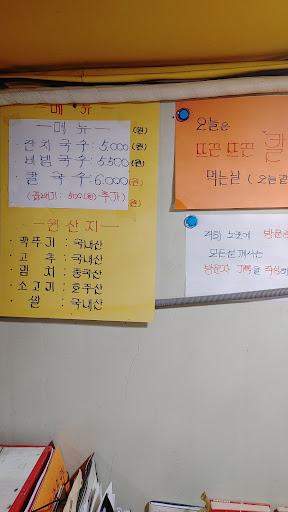 메뉴
(원)
메뉴 (원)
잔치국수: 5,000 (원)
비빔국수: 5500 (원)
칼국수: 6,000 (원)
(곱빼기: 500(원) 추가)
원산지
깍두기 : 국내산
고추 : 국내산
김치 : 중국산
소고기 : 호주산
쌀 : 국내산
오늘은
뜨끈뜨끈 칼
먹는날 (오늘같
저희 노포에 방문
모든분께서는
방문자